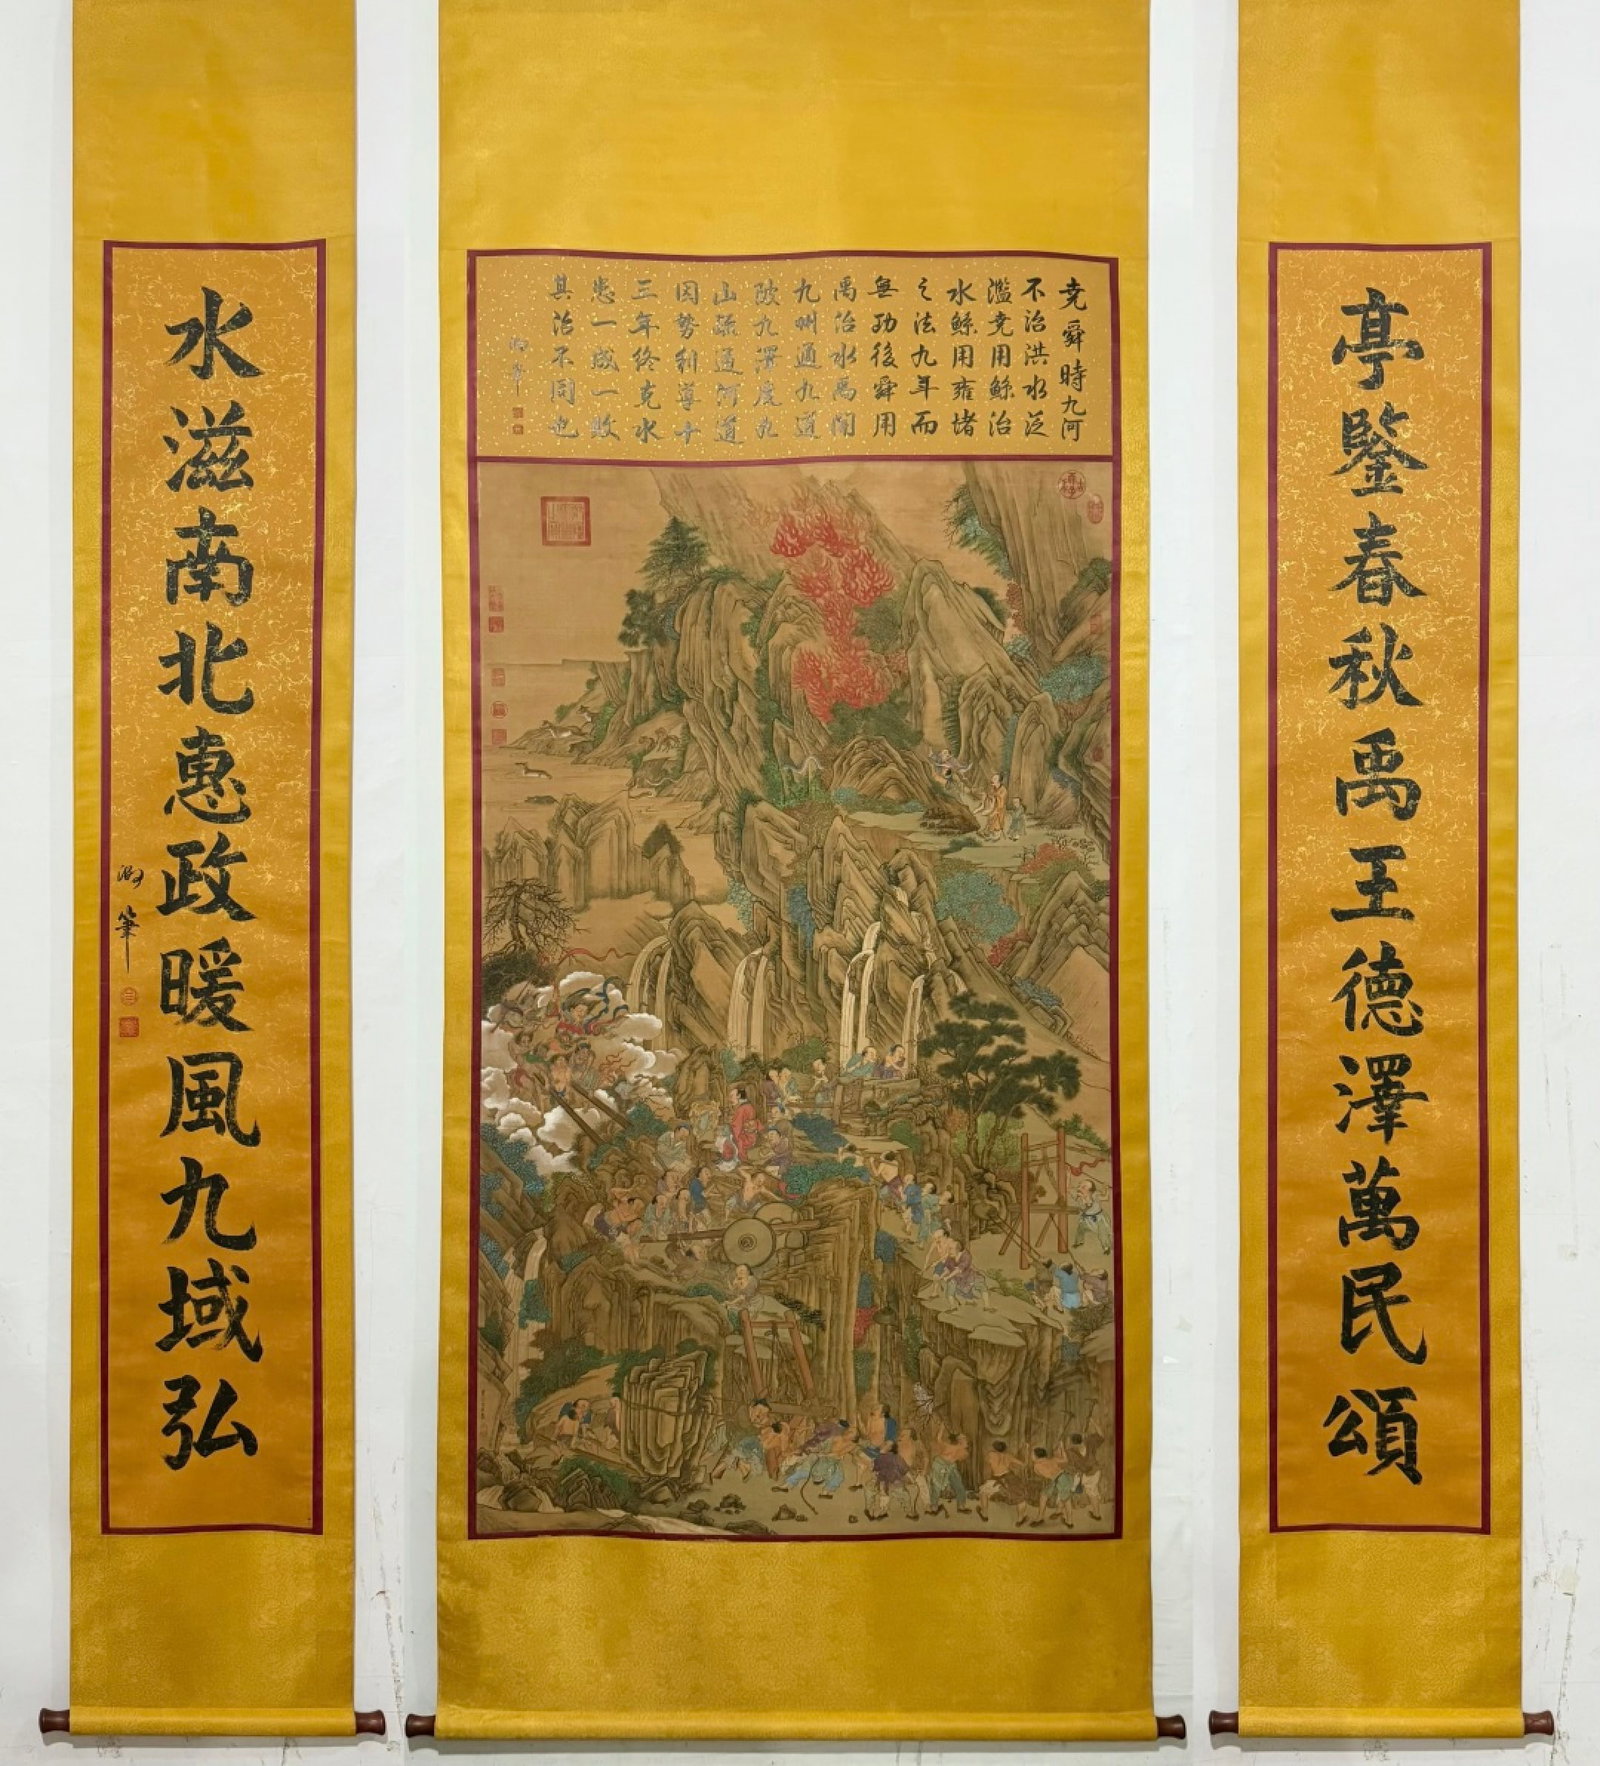 亭鑒春秋禹王德澤萬民頌
堯舜時九河
不治洪水泛
濫堯用鯀治
水鯀用雍堵
之法九年而
無功後舜用
禹治水禹開
九州通九道
陂九澤度九
山疏通河道
因勢利導十
三年終克水
患一成一敗
其治不同也
御筆
水滋南北惠政暖風九域弘
御筆